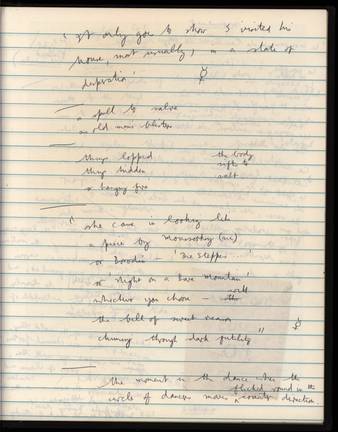 ( it only goes to show I visited his
house, most usually, in a state of
desperation'
a spell to salve
an old man's blisters
things lopped the body
things hidden sifts to
or hanging fire salt
" she came in looking like
a piece by Moussorgsky (sic)
or Borodin – 'The Steppes'
or 'Night on a bare mountain'
whichever you choose – with
the bell of sweet reason
chiming through dark futility "
The moment in the dance when the
circle of dancers moves flicked round in the counter direction